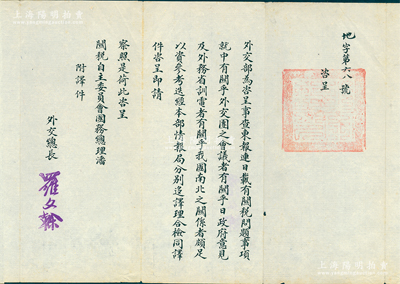 地字第六八號
咨呈
外交部為咨呈事查東報連日載有關稅問題事項
就中有關乎外交團之會議者有關乎日政府意見
及外務省訓電者有關乎我國南北之關係者頗足
以資參考迭經本部情報局分別迻譯理合檢同譯
件咨呈即請
察照是荷此咨呈
關稅自主委員會國務總理潘
附譯件
外交總長
羅文榦